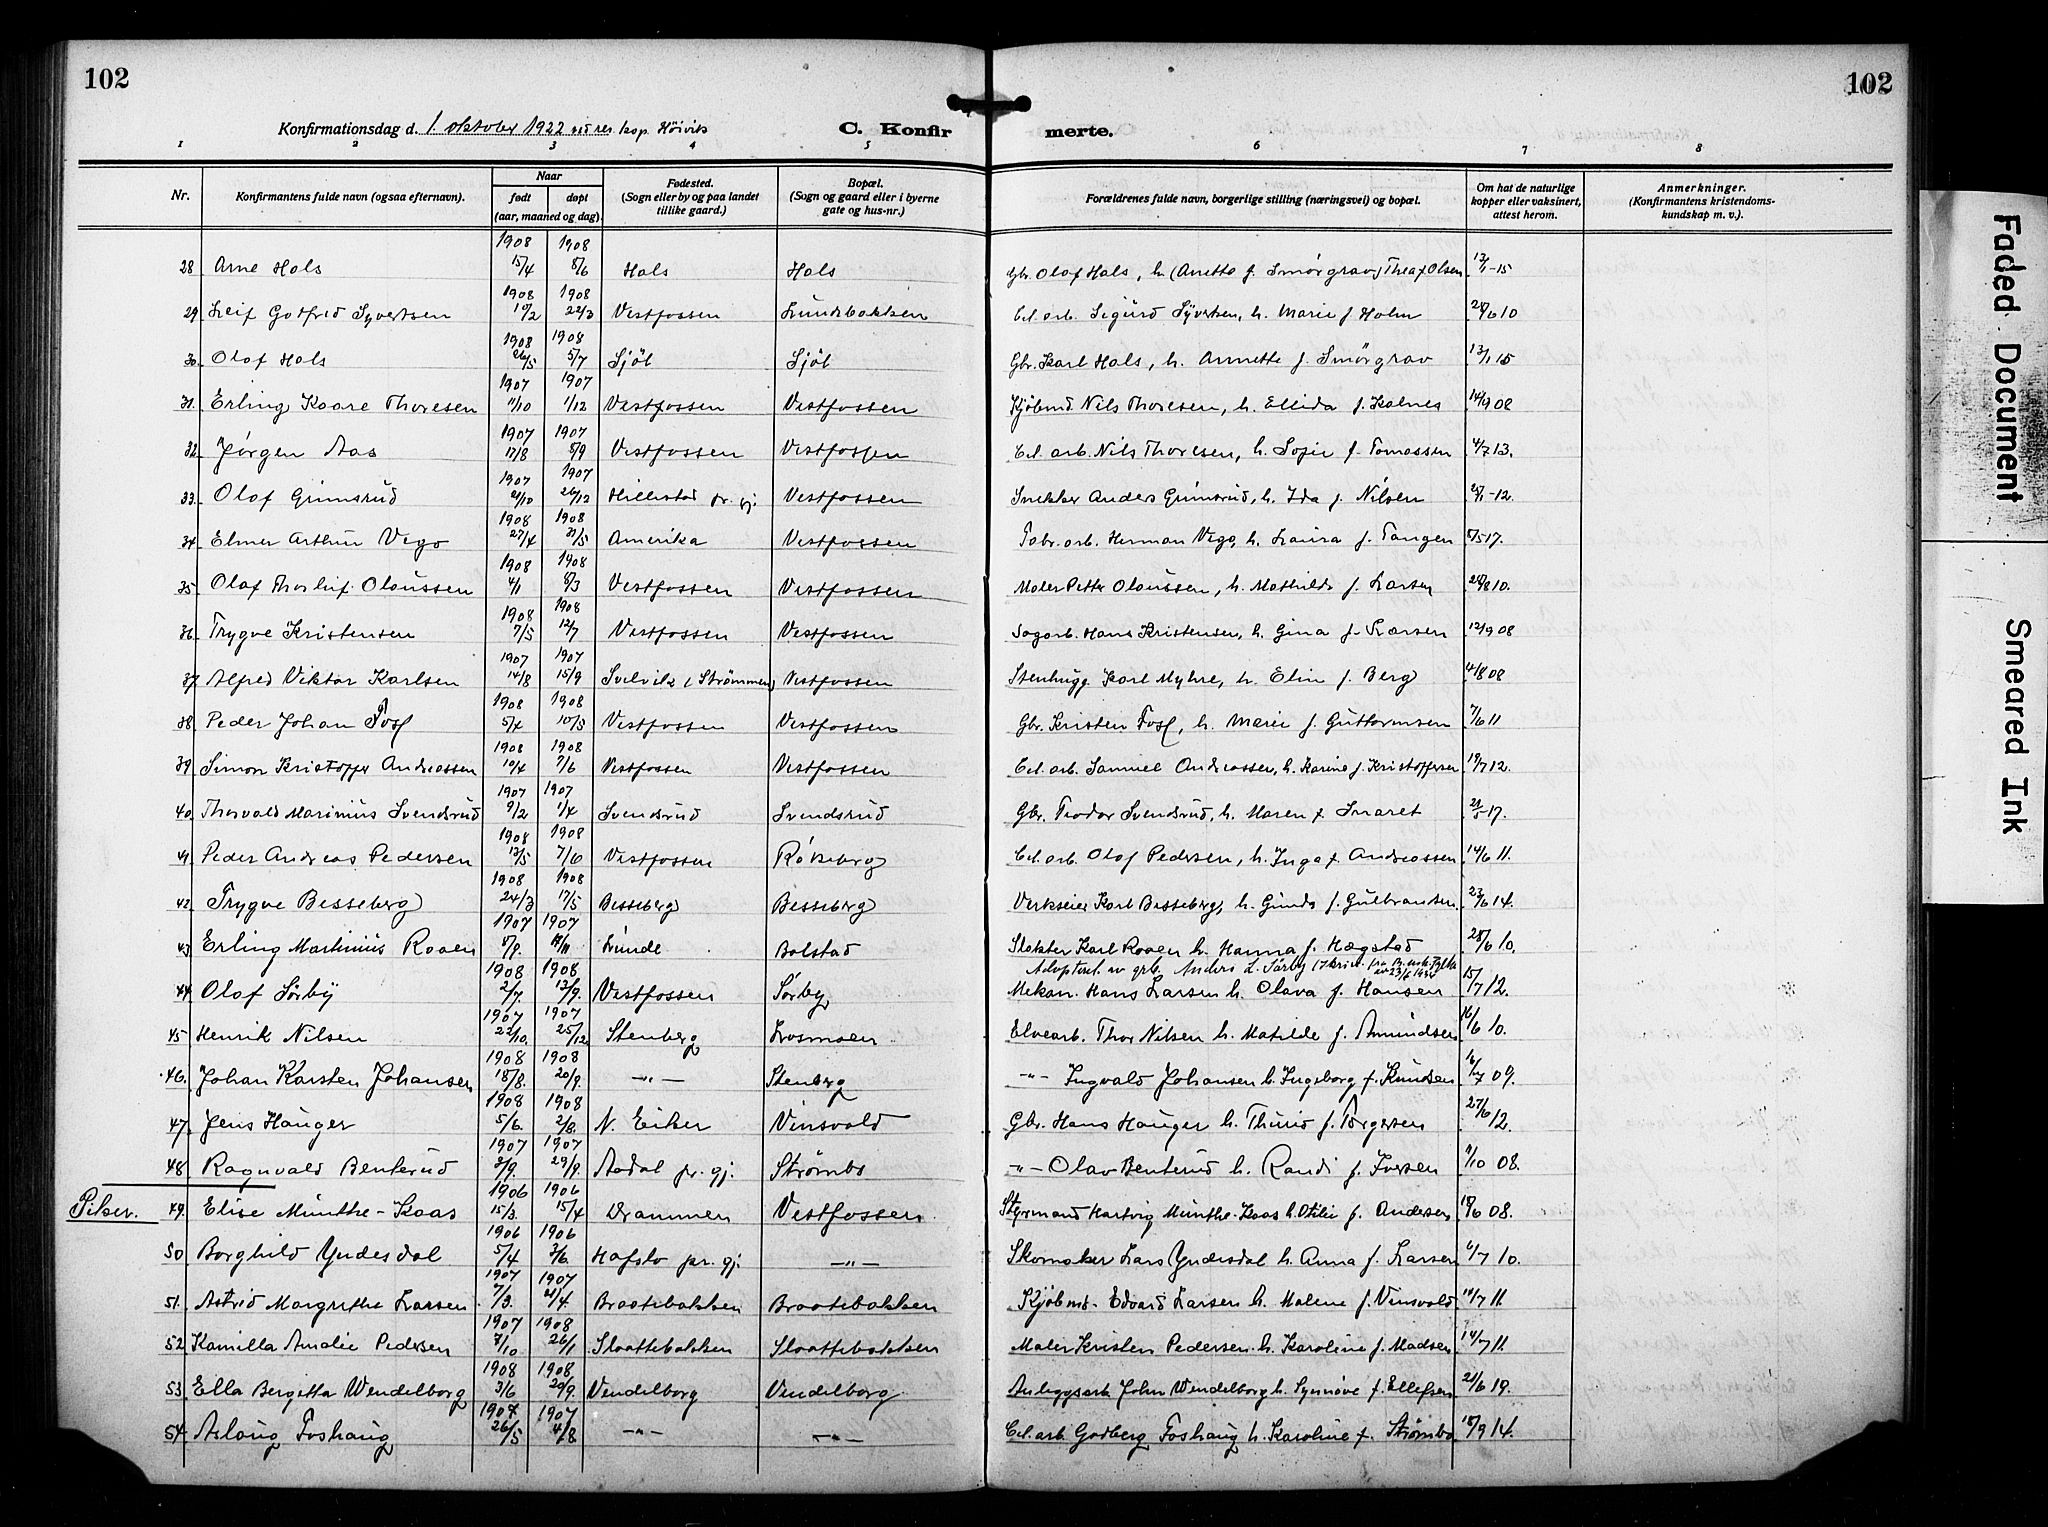 102
102
Konfirmationsdag d. 1. oktober 1922 ved res. kap. Höivik
C. Konfir merte.
1 2 3 4 5 6 7 8
Nr. Konfirmantens fulde navn (ogsaa efternavn). Naar født døpt (aar, maaned og dag). Fødested. (Sogn eller by og paa landet tillike gaard.) Bopæl. (Sogn og gaard eller i byerne gate og hus-nr.) Forældrenes fulde navn, borgerlige stilling (næringsvei) og bopæl. Om hat de naturlige kopper eller vaksinert, attest herom. Anmerkninger. (Konfirmantens kristendoms- kundskap m. v.).
28 Arne Hals 1908 15/4 1908 8/6 Hals Hals Gbr. Olaf Hals, h. (Anette f. Smörgrav) Thea f Olsen 13/1-15
29 Leif Gotfred Syvertsen 1908 1908 22/3 Vestfossen Lundsbakken Cel. arb. Sigurd Syvertsen, h. Marie f Holm
30 Olaf Hals 1908 26/5 1908 5/7 Sjöl Sjöl Gbr. Karl Hals, h. Annette f. Smörgrav 13/1 15
31. Erling Kaare Thoresen 1907 11/10 1907 1/12 Vestfossen Vestfossen Kjöbmd. Nils Thoresen, h. Ellida f. Kolnes 14/9 08
32. Jørgen Aas 1907 17/8 1907 8/9 Vestfossen Vestfossen Cel. arb. Nils Thoresen, h. Sofie f. Tomassen 4/7 13.
33. Olaf Grimsrud 1907 1907 26/12 Hillestad pr. gj. Vestfossen Snekker Anders Grimsrud, h. Ida f. Nilsen
34 Elmer Arthur Vego 1908 27/4 1908 31/5 Amerika Vestfossen Fabr. arb. Herman Vego, h. Laura f. Tangen 8/5 17.
35. Olaf Thorleif Olaussen 1908 4/1 1908 8/3 Vestfossen Vestfossen Maler Petter Olaussen, h. Mathilde f. Larsen
36. Trygve Kristensen 1908 7/5 1908 12/7 Vestfossen Vestfossen Sagarb. Hans Kristensen, h. Gina f. Larsen 12/9 08
37. Alfred Viktor Karlsen 1907 14/8 1907 15/9 Svelvik (Strömmen) Vestfossen Stenhugg. Karl Myhre, h. Elin f. Berg 4/8 08
38. Peder Johan Foss 1908 5/4 1908 10/5 Vestfossen Vestfossen Gbr. Kristen Foss, h. Marie f. Guttormsen 7/6 11
39. Simon Kristoffer Andreassen 1908 10/4 1908 7/6 Vestfossen Vestfossen Cel. arb. Samuel Andreassen, h. Karine f. Kristoffersen 19/7 12.
40. Thorvald Marinius Svendsrud 1907 9/2 1907 1/4 Svendsrud Svendsrud Gbr. Teodor Svendsrud, h. Maren f. Smaret 21/5-17.
41. Peder Andreas Pedersen 1908 13/5 1908 7/6 Vestfossen Røkeberg Cel. arb. Olaf Pedersen, h. Inga f. Andreassen 14/6 11.
42. Trygve Besseberg 1908 24/3 1908 17/5 Besseberg Besseberg Verkseier Karl Besseberg, h. Gunda f. Gulbrandsen. 23/6 14.
43. Erling Martinius Roaen 1907 8/9. 1907 Lunde Bolstad Slakter Karl Roaen h. Hanna f. Hægstad 28/6 10.
Adoptert av grb. Anders L. Sørby
44. Olaf Sørby 1908 2/7. 1908 13/9. Vestfossen Sørby Mekan. Hans Larsen h. Olava f. Hansen 15/7 12.
45 Henrik Nilsen 1907 22/10. 1907 25/12 Stenberg Losmoen Elvearb. Thor Nilsen h. Matilde f. Amundsen 16/6 10.
46. Johan Karsten Johansen 1908 18/8. 1908 20/9. —„— Stenberg —„— Ingvald Johansen h. Ingeborg f. Knudsen 09.
47. Jens Hauger 1908 5/6. 1908 2/8. N. Eiker Vinsvold Gbr. Hans Hauger h. Thurid f. Torgersen 27/6 12.
48. Ragnvald Benterud 1907 3/9. 1907 29/9. Aadal pr. gj. Strømbo —„— Olav Benterud h. Randi f. Iversen 7/10 08.
Piker.
49. Elise Munthe-Kaas 1906 15/3. 1906 15/4 Drammen Vestfossen. Styrmand Hartvig Munthe-Kaas h. Otilie f. Andersen 18/6 08.
50. Borghild Yndesdal 1906 5/4 1906 3/6. Hafslo pr. gj. —„— Skomaker Lars Yndesdal h. Anna f. Larsen 6/7 10.
51. Astrid Margrethe Larsen. 1907 7/3. 1907 21/4. Braatebakken Braatebakken Kjöbmd. Edvard Larsen h. Malene f. Vinsvold 19/7 11.
52. Kamilla Amalie Pedersen 1907 7/10 1908 26/1 Slaattebakken Slaattebakken Maler Kristen Pedersen. h. Karoline f. Madsen 14/7 11.
53 Ella Bergitta Wendelborg 1908 3/6 1908 20/9. Vendelborg Vendelborg Anleggsarb. John Wendelborg h. Synnöve f. Ellefsen 21/6 19.
54. Aslaug Foshaug 1907 26/5 1907 4/8 —„— —„— Cel. arb. Godberg Foshaug h. Karoline f. Strømbo 18/9 14.
Faded Document
Smeared Ink